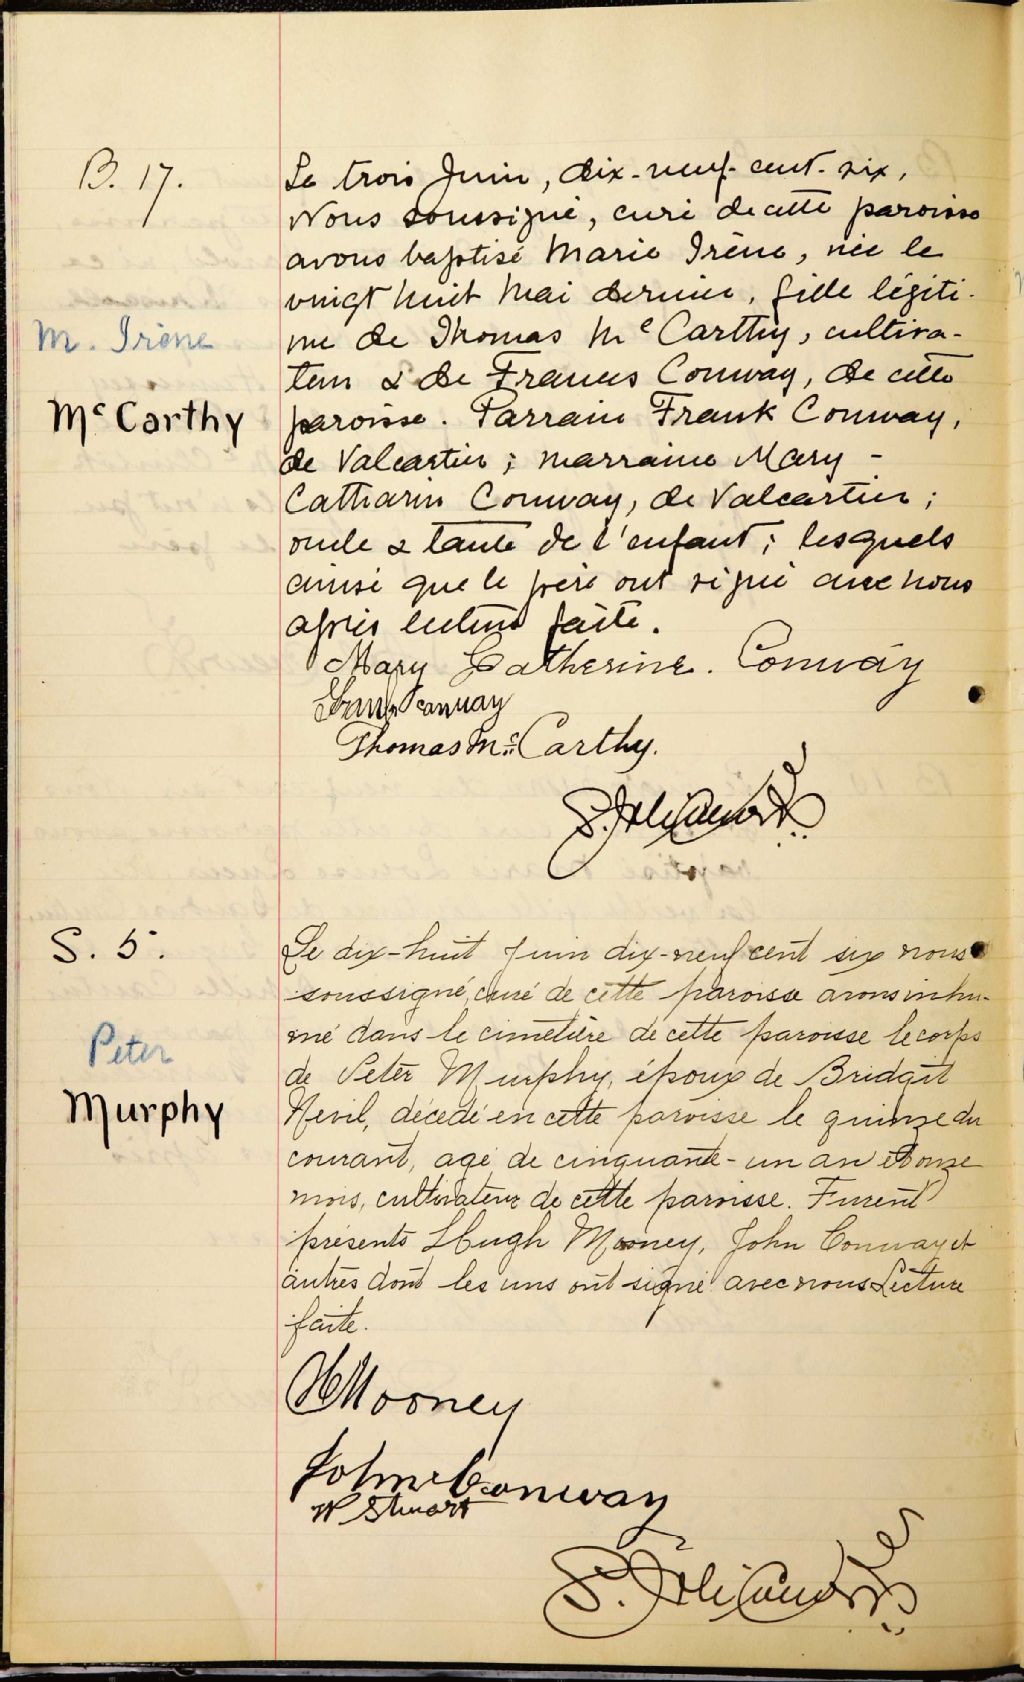 B. 17.
M. Irène
McCarthy
Le trois Juin, dix-neuf-cent-six,
Nous soussigné, curé de cette paroisse
avons baptisé Marie Irène, née le
vingt huit Mai dernier, fille légiti-
me de Thomas McCarthy, cultiva-
teur & de Frances Conway, de cette
paroisse. Parrain Frank Conway,
de Valcartier; marraine Mary -
Catharin Conway, de Valcartier;
oncle & tante de l'enfant; lesquels
ainsi que le père ont signé avec nous
après lecture faite.
Mary Catherine. Conway
Frank Conway
Thomas McCarthy.
S. 5.
Peter
Murphy
Le dix-huit Juin dix-neuf cent six nous
soussigné, curé de cette paroisse avons inhu-
mé dans le cimetière de cette paroisse le corps
de Peter Murphy, époux de Bridgit
Nevil, décédé en cette paroisse le quinze du
courant, agé de cinquante-un an et onze
mois, cultivateur de cette paroisse. Furent
présents Hugh Mooney, John Conway et
autres dont les uns ont signé avec nous Lecture
faite.
H Mooney
John Conway
W Stuart